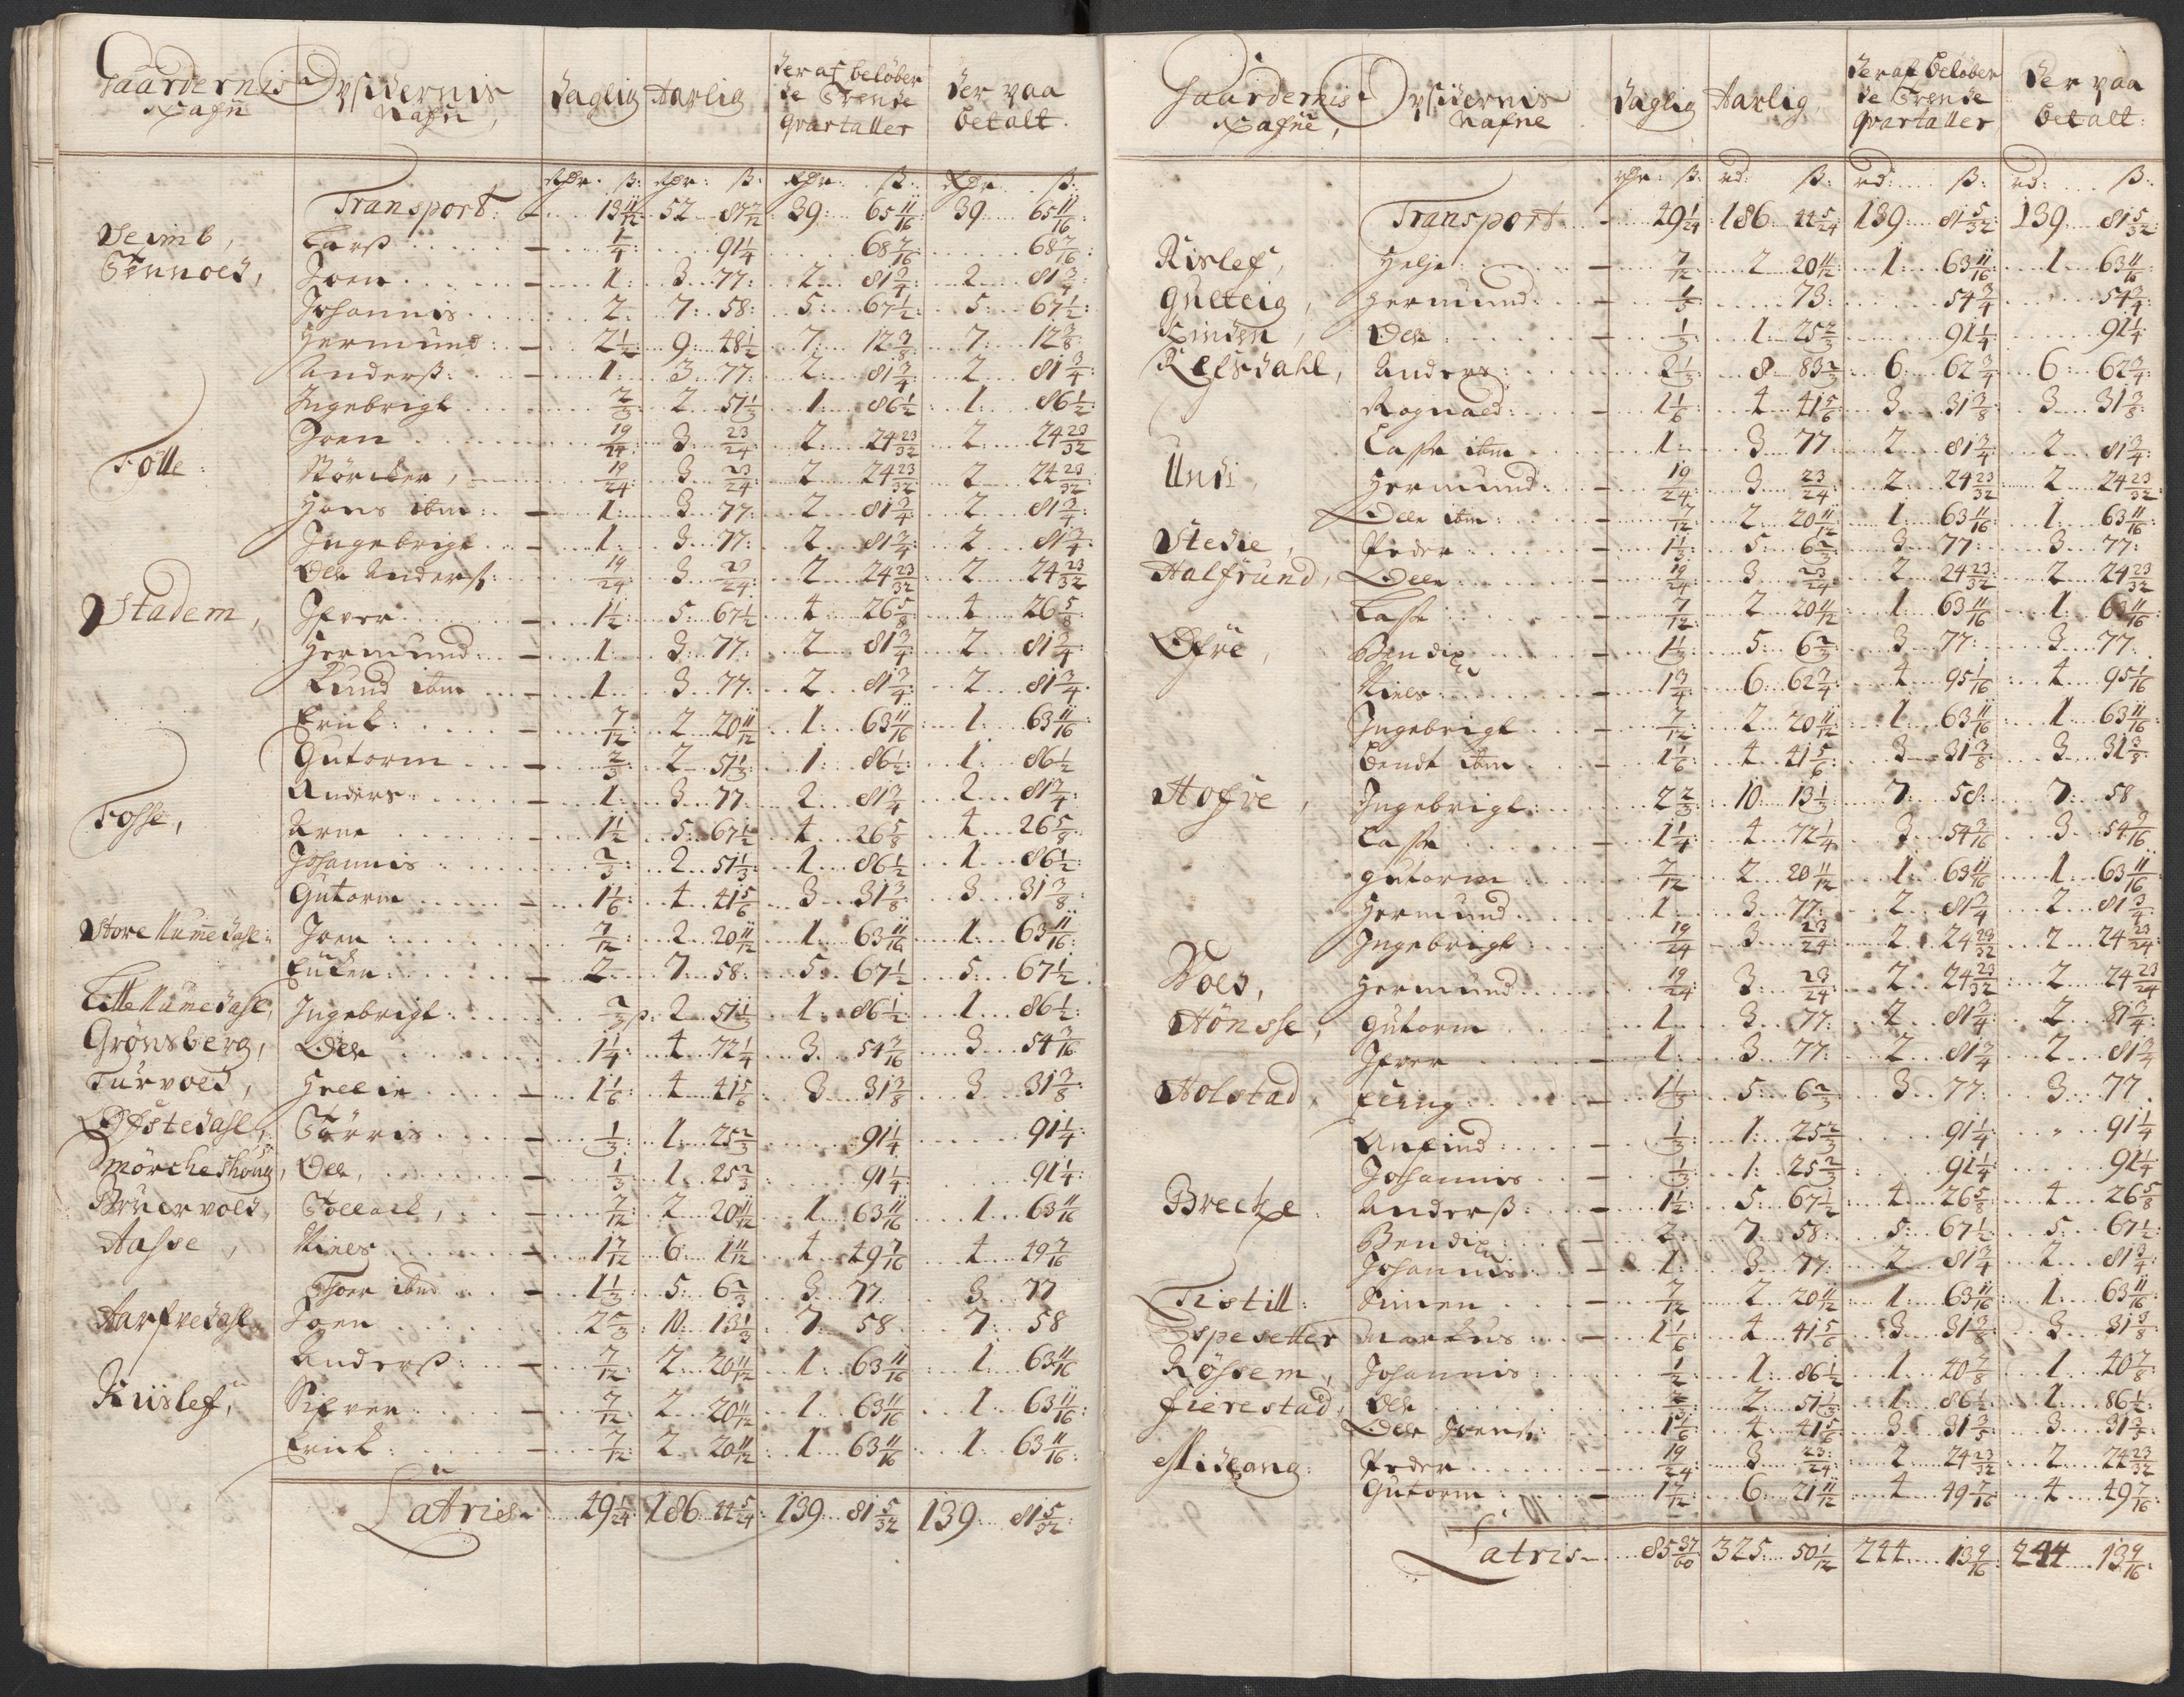 Gaardernis Nafn | Opsidernis Nafn, | Daglig | Aarlig | der af beløber de Trende Qvartaller | Der paa betalt.
Rdr. ß: | Rdr: ß: | Rdr: ß: | Rdr. ß:
Transport: – 13 11/12 | 52 87 7/12 | 39: 65 11/16 | 39 65 11/16
Seimb, Larß – 1/4 | 91 1/4 | 68 7/16 | 68 7/16
Tennoed, Joen – 1: | 3 77: | 2 81 3/4 | 2 81 3/4
Johannis 2: | 7: 58: | 5: 67 1/2 | 5: 67 1/2
Hermund: – 2 1/2 | 9: 48 1/2 | 7: 12 3/8 | 7: 12 3/8
Anderß: – 1: | 3 77: | 2: 81 3/4 | 2 81 3/4
Ingebrigt 2/3 | 2 51 1/3 | 1: 86 1/2 | 1: 86 1/2
Joen 19/24 | 3 23/24 | 2: 24 23/32 | 2: 24 23/32
Tølle: Størcker, 19/24 | 3: 23/24 | 2 24 23/32 | 2 24 23/32
Hans ibm: – 1: | 3 77: | 2 81 3/4 | 2 81 3/4
Ingebrigt – 1: | 3 77: | 2 81 3/4 | 2 81 3/4
Ole Anderß: 19/24 | 3 23/24 | 2 24 23/32 | 2 24 23/32
Stadem, Ifver – 1 1/2 | 5 67 1/2 | 4 26 5/8 | 4 26 5/8
Hermund: – 1 | 3 77: | 2 81 3/4 | 2 81 3/4
Knud ibm – 1 | 3 77: | 2 81 3/4 | 2 81 3/4
Erick: – 7/12 | 2 20 11/12 | 1: 63 11/16 | 1: 63 11/16
Gutorm – 2/3 | 2 51 1/3 | 1 86 1/2 | 1: 86 1/2
Anders: – 1 | 3 77 | 2 81 3/4 | 2 81 3/4
Fosse, Arne 1 1/2 | 5: 67 1/2 | 4 26 5/8 | 4 26 5/8
Johannis 2/3 | 2 51 1/3 | 1 86 1/2 | 1 86 1/2
Gutorm – 1 1/6 | 4 41 5/6 | 3 31 3/8 | 3 31 3/8
Store Kumedahl: Joen: 7/12 | 2 20 11/12 | 1 63 11/16 | 1: 63 11/16
– 2 | 7: 58: | 5: 67 1/2 | 5: 67 1/2
Litle Kumedahl, Ingebrigt 2/3 | 2 51 1/3 | 1: 86 1/2 | 1 86 1/2
Grønsberg, Ole 1 1/4 | 4 72 1/4 | 3 54 3/16 | 3 54 3/16
Turvold, Hellie 1 1/6 | 4 41 5/6 | 3 31 3/8 | 3 31 3/8
Ofstedahl, Tørris – 1/3 | 1: 25 2/3 | 91 1/4 | 91 1/4
Smørcheshoug, Ole, 1/3 | 1 25 2/3 | 91 1/4 | 91 1/4
Bruervold, Tollack, – 7/12 | 2 20 11/12 | 1 63 11/16 | 1 63 11/16
Aasse, Niels – 1 7/12 | 6: 1 11/12 | 4 49 7/16 | 4 49 7/16
Thoer ibmd – 1 1/3 | 5: 6 2/3 | 3 77 | 3 77
Aarfvedahl, Joen 2 2/3 | 10: 13 1/3 | 7: 58 | 7: 58
Anderß: – 7/12 | 2: 20 11/12 | 1: 63 11/16 | 1: 63 11/16
Kiislef, Sifver – 7/12 | 2 20 11/12 | 1 63 11/16 | 1: 63 11/16
Erick: – 7/12 | 2 20 11/12 | 1 63 11/16 | 1 63 11/16
Latris – 49 1/24 | 186 44 5/24 | 139: 81 5/32 | 139: 81 5/32
Gaardernis Nafne, | Opsidernis Nafne | Daglig | Aarlig, | der af beløber de Trende Qvartaller | Der paa betalt:
rdr: ß: | rd: ß: | rd: ß: | rd: ß:
Transport – 49 1/24 | 186: 44 5/24 | 139 81 5/32 | 139 81 5/32
Kislef, Helje – 7/12 | 2 20 11/12 | 1: 63 11/16 | 1 63 11/16
Gulteig, Hermund: – 1/5 | 73: | 54 3/4 | 54 3/4
Linden, Ole – 1/3 | 1: 25 2/3 | 91 1/4 | 91 1/4
Refsdahl, Anders: 2 1/3 | 8 83 2/3 | 6: 62 3/4 | 6: 62 3/4
Rognald: – 1 1/6 | 4 41 5/6 | 3 31 3/8 | 3 31 3/8
Lasse ibm 1: | 3 77 | 2 81 3/4 | 2 81 3/4
Undi, Hermund: – 19/24 | 3 23/24 | 2: 24 23/32 | 2 24 23/32
Ole ibm: – 7/12 | 2: 20 11/12 | 1: 63 11/16 | 1: 63 11/16
Stedie, Peder – 1 1/3 | 5: 6 2/3 | 3 77: | 3 77:
Halfrund, Ole 19/24 | 3 23/24 | 2 24 23/32 | 2 24 23/32
Lasse: 7/12 | 2 20 11/12 | 1: 63 11/16 | 1: 63 11/16
Øfre, Bendix – 1 1/3 | 5 6 2/3 | 3 77: | 3 77.
Niels: – 1 3/4 | 6: 62 3/4 | 4 95 1/16 | 4 95 1/16
Ingebrigt – 7/12 | 2 20 11/12 | 1: 63 11/16 | 1 63 11/16
Bendt ibm – 1 1/6 | 4 41 5/6 | 3 31 3/8 | 3 31 3/8
Hofre, Ingebrigt: 2 2/3 | 10 13 1/3 | 7: 58: | 7: 58
Lasse – 1 1/4 | 4 72 1/4 | 3 54 3/16 | 3 54 3/16
Gutorm 7/12 | 2 20 11/12 | 1: 63 11/16 | 1: 63 11/16
Hermund 1: | 3 77: | 2 81 3/4 | 2 81 3/4
Ingebrigt: 19/24 | 3 23/24 | 2 24 23/32 | 2 24 23/24
Hermund 19/24 | 3: 23/24 | 2 24 23/32 | 2 24 23/24
Hønsse, Gutorm 1 | 3 77: | 2 81 3/4 | 2 81 3/4
Ifver – 1: | 3 77: | 2 81 3/4 | 2 81 3/4
Holstad, Elling 1 1/3 | 5: 6 2/3 | 3 77: | 3: 77.
Anfind: – 1/3 | 1: 25 2/3 | 91 1/4 | 91 1/4
Johannis 1/3 | 1: 25 2/3 | 91 1/4 | 91 1/4
Brecke Anderß: – 1 1/2 | 5: 67 1/2 | 4 26 5/8 | 4 26 5/8
Bendix: – 2: | 7: 58: | 5: 67 1/2 | 5: 67 1/2
Johannis – 1: | 3 77: | 2 81 3/4 | 2 81 3/4
Tistill: Simen – 7/12 | 2 20 11/12 | 1: 63 11/16 | 1: 63 11/16
Espesetter Markus: – 1 1/6 | 4 41 5/6 | 3 31 3/8 | 3 31 3/8
Røssem, Johannis: 1/2 | 1 86 1/2 | 1 40 7/8 | 1 40 7/8
Fierestad, Ole 2/3 | 2: 51 1/3 | 1 86 1/2 | 1: 86 1/2
Ole Joenß: 1 1/6 | 4 41 5/6 | 3 31 3/5 | 3 31 3/5
Midlang: Peder – 19/24 | 3 23/24 | 2 24 23/32 | 2 24 23/32
Gutorm – 1 7/12 | 6: 21 11/12 | 4 49 7/16 | 4 49 7/16
Latris – 85 37/60 | 325: 50 1/12 | 244 13 9/16 | 244 13 9/16